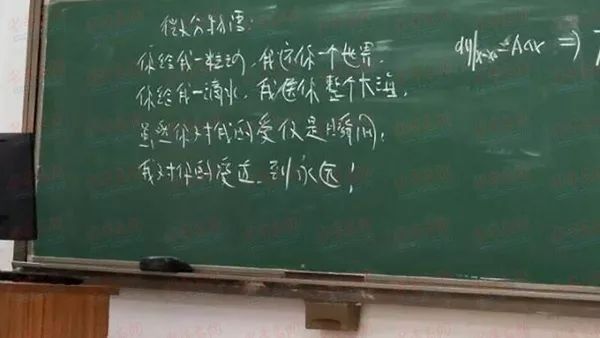 微分物语:
你给我一粒沙，我讲你一个世界，
你给我一滴水，我还你整个大海，
虽然你对我的爱仅是瞬间，
我对你的爱直到永远！
dy|x=x₀=AΔx ⇒